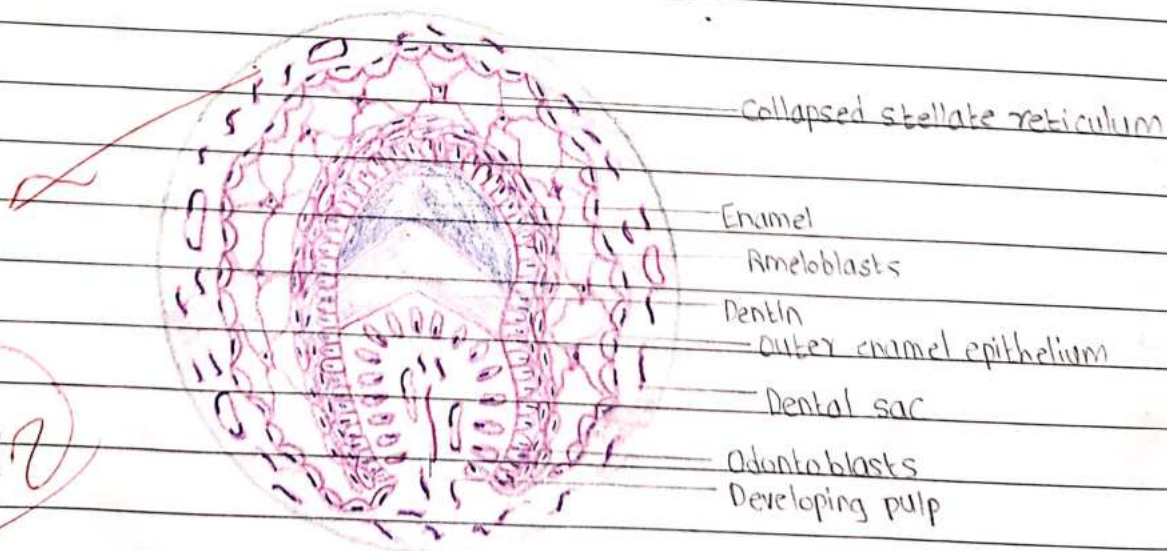 Collapsed stellate reticulum
Enamel
Ameloblasts
Dentin
Outer enamel epithelium
Dental sac
Odontoblasts
Developing pulp